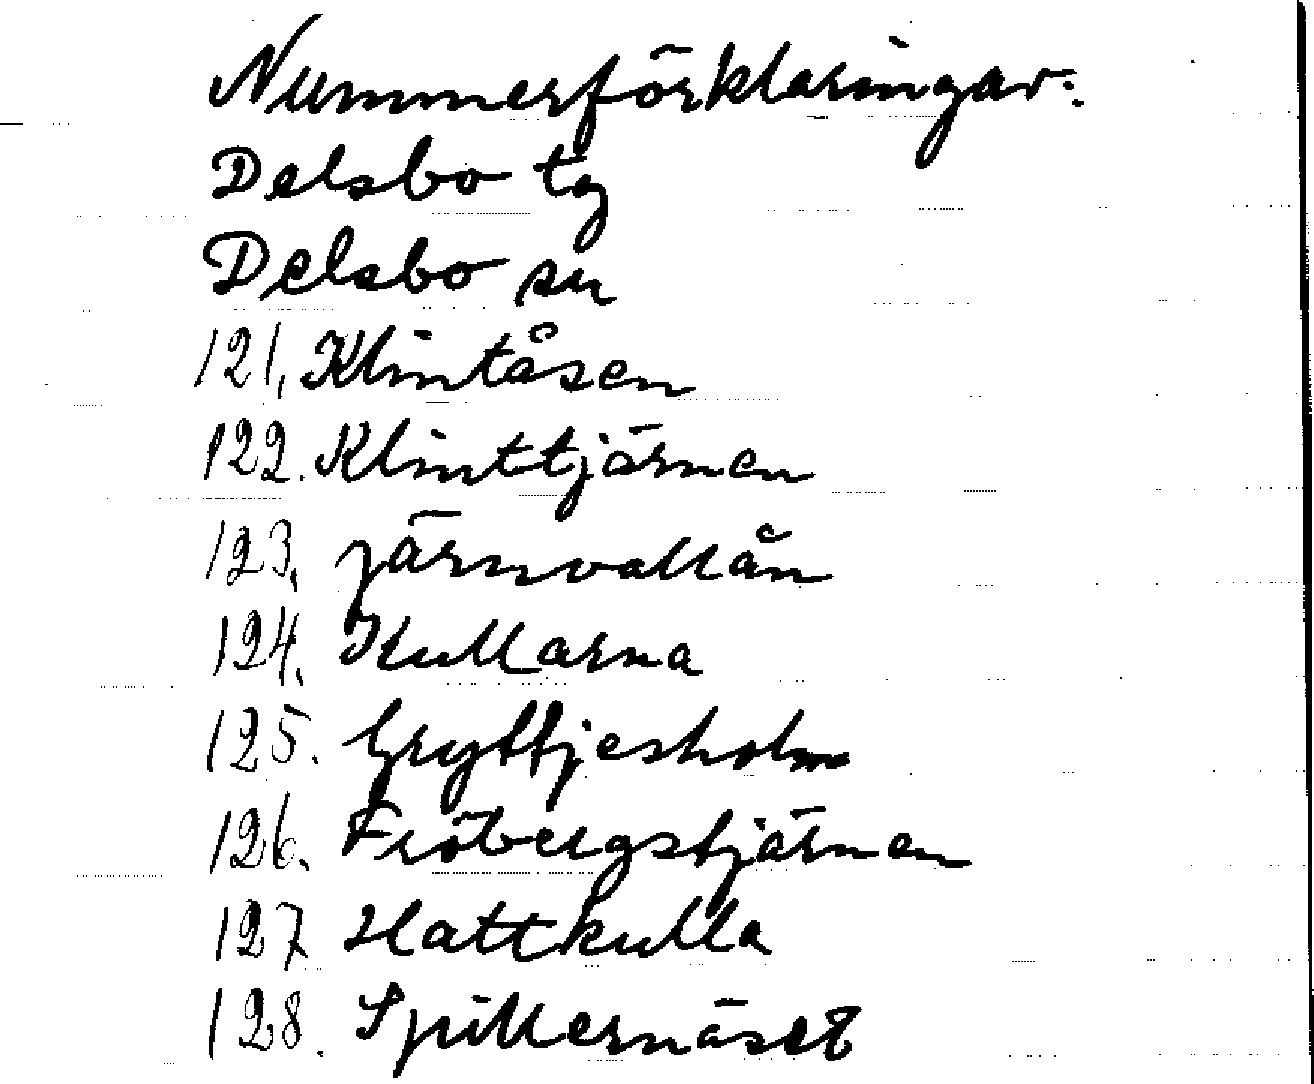 Nummerförklaringar:
Delsbo tg
Delsbo sn
121, Klintåsen
122. Klinttjärnen
123. järnvallån
124. Kullarna
125. Gryttjesholm
126. Fröbergstjärnen
127 Hattkulla
128. Spillernäset